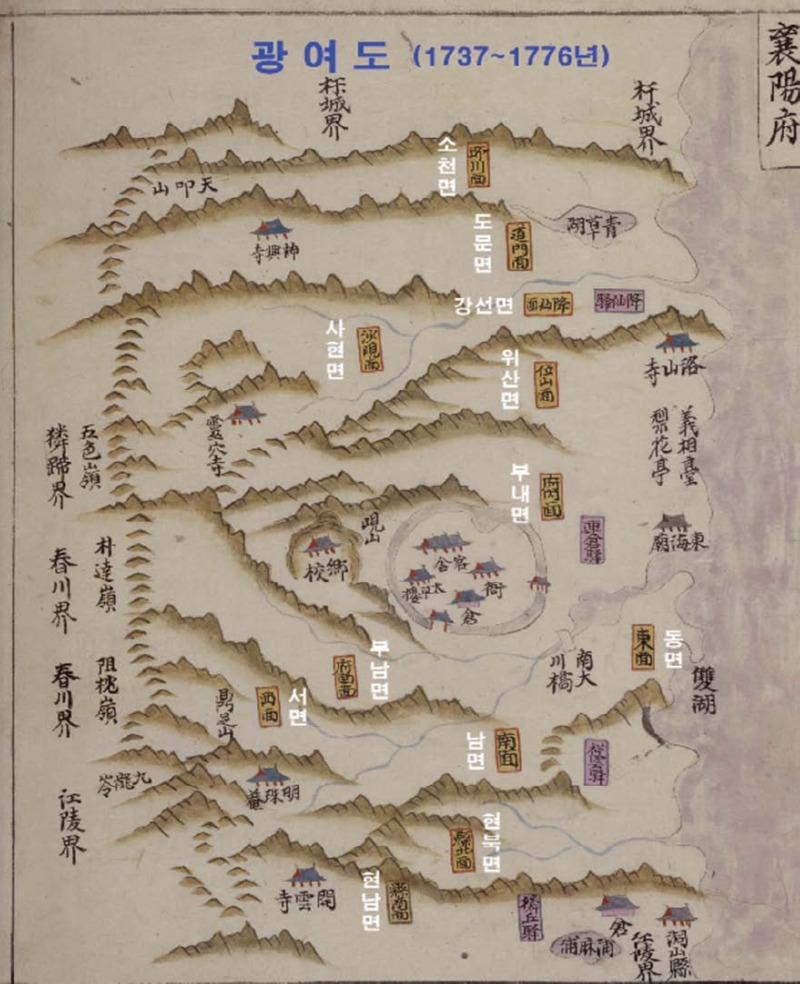 광여도 (1737~1776년)
襄陽府
杆城界
杆城界
소천면
所川面
天吼山
神興寺
도문면
道門面
青草湖
강선면
降仙面
降仙驛
사현면
沙峴面
위산면
位山面
洛山寺
靈穴寺
義相臺
梨花亭
五色嶺
獜蹄界
부내면
府內面
連倉驛
峴山
鄉校
官舍
衙
太平樓
倉
東海廟
朴達嶺
春川界
南大川橋
동면
東面
雙湖
부남면
府南面
阻枕嶺
春川界
서면
西面
鼎足山
남면
南面
祥雲驛
九龍岺
明珠菴
江陵界
현북면
縣北面
현남면
縣南面
開雲寺
獜丘驛
倉
洞山縣
江陵界
浦麻浦